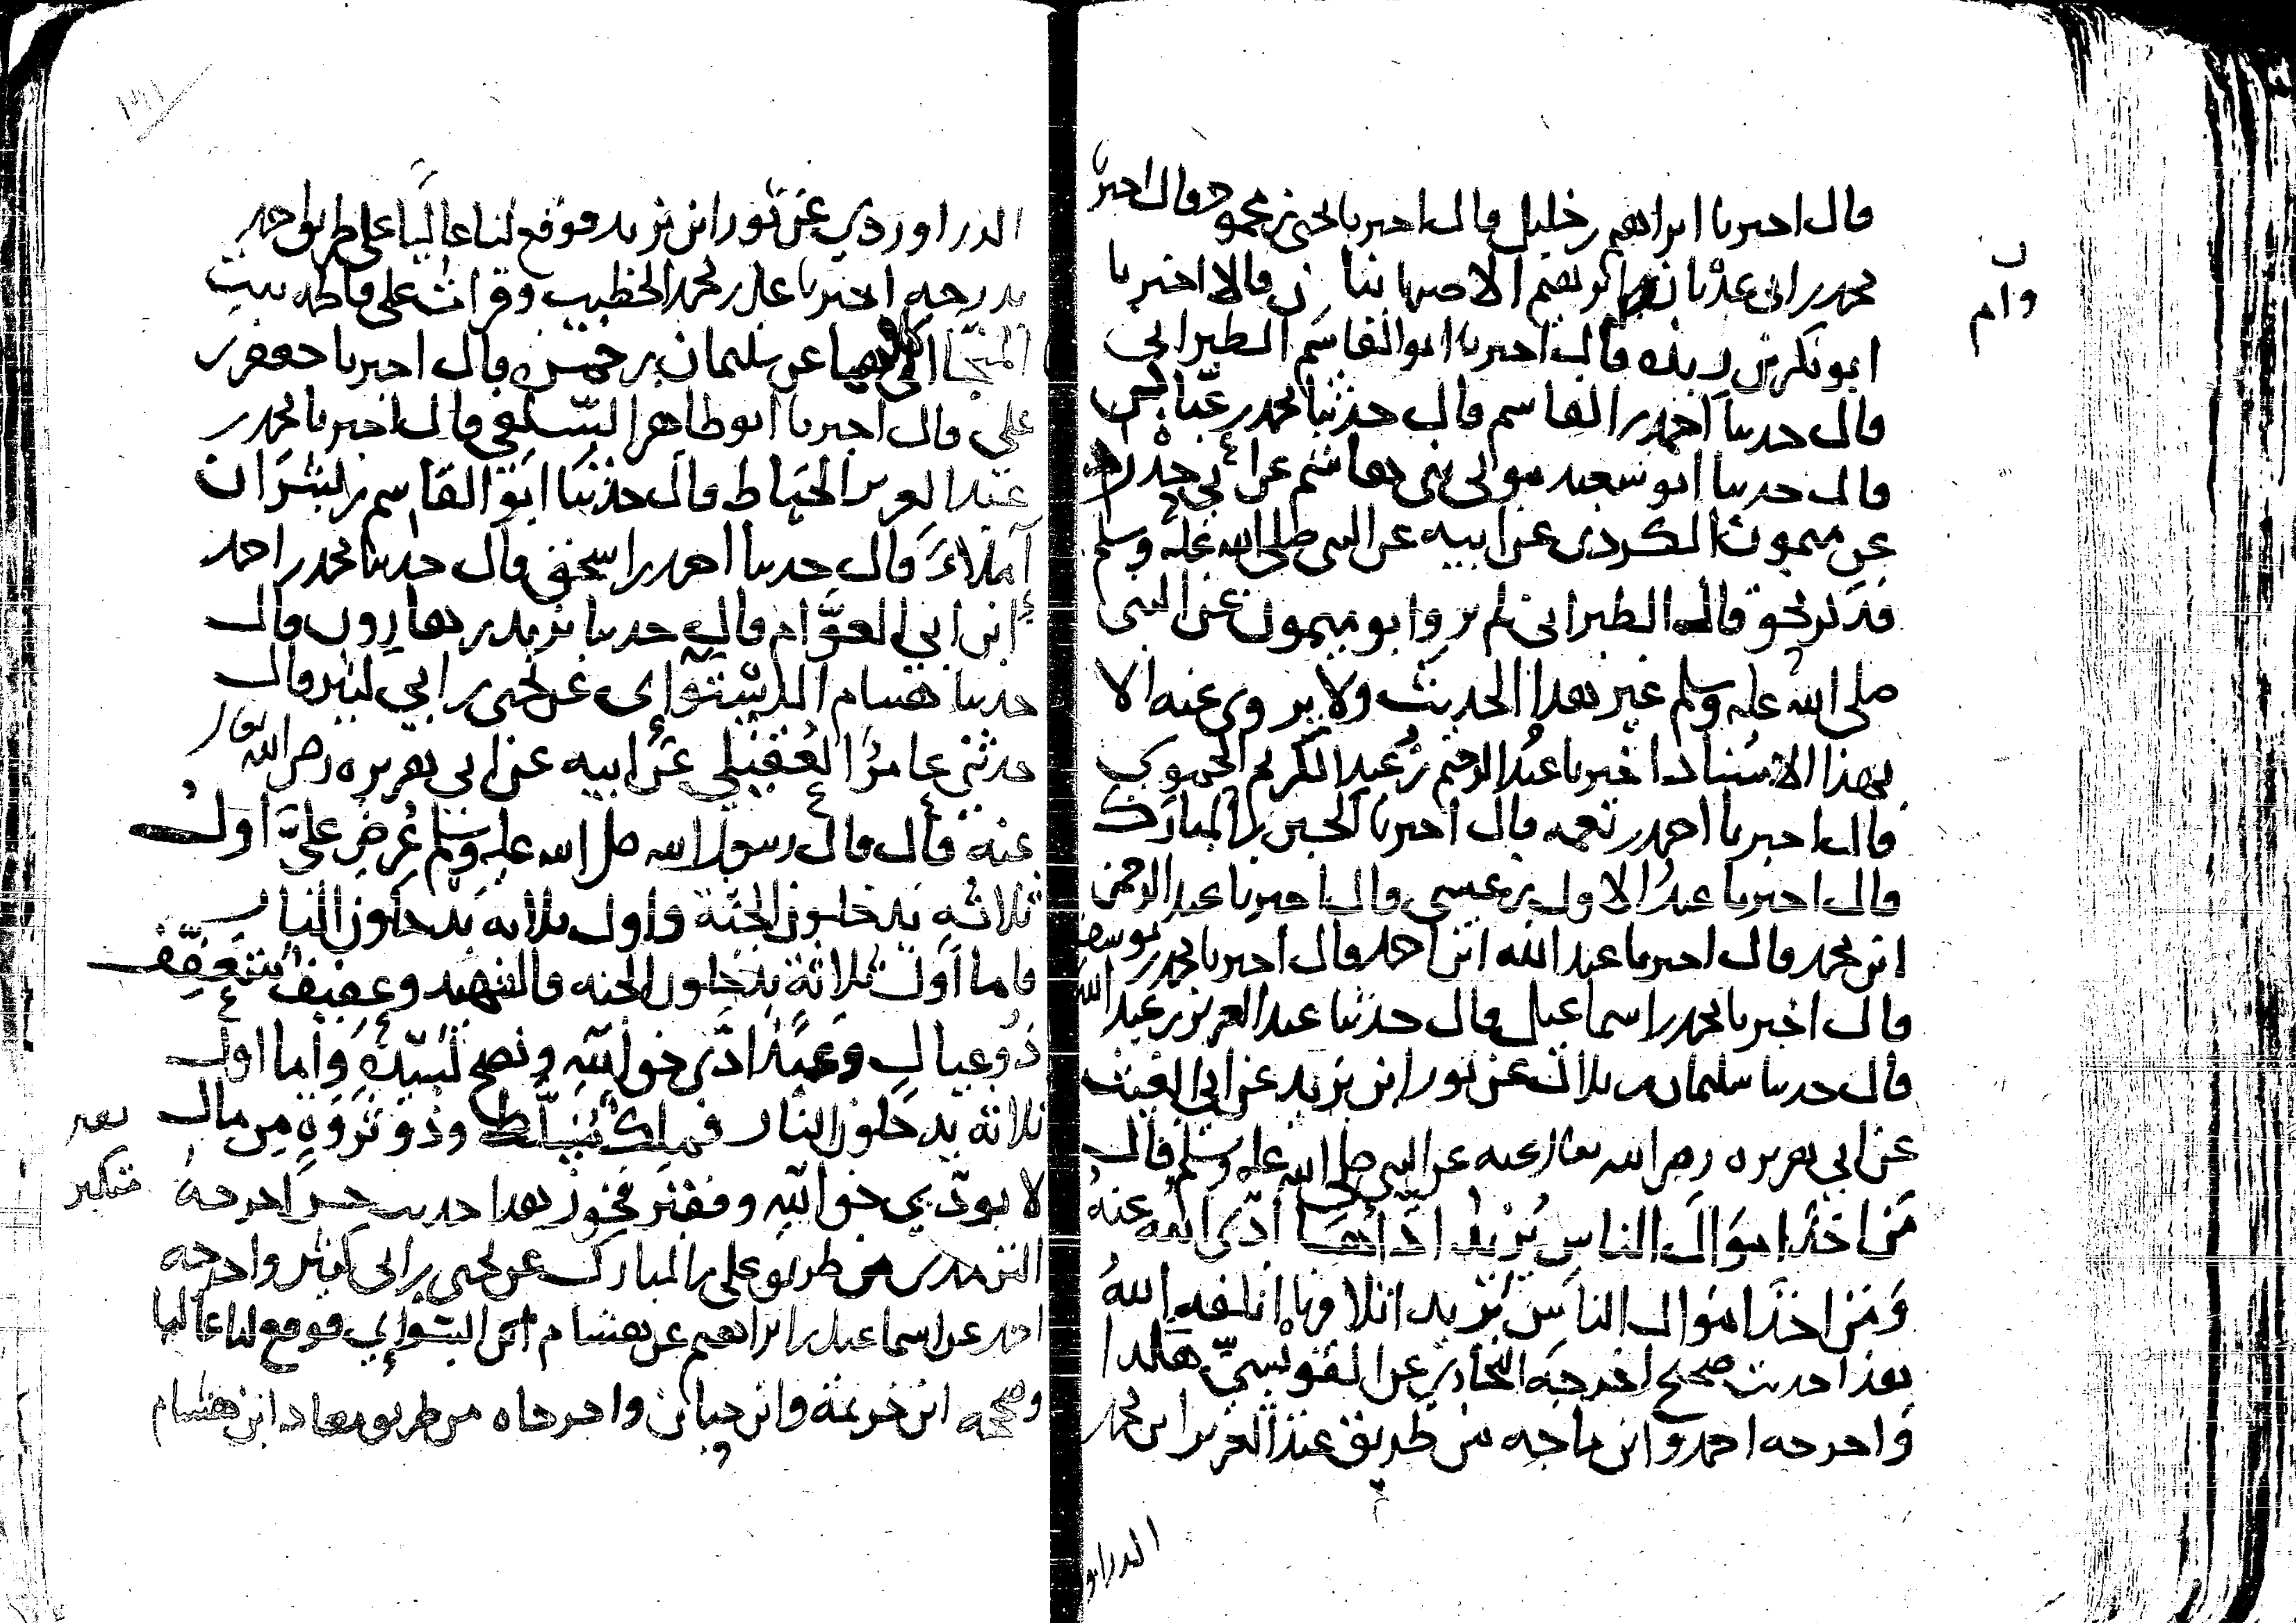 قال اخبرنا ابراهيم بن خليل قال اخبرنا يحيى بن محمود ح وقال اخبرنا
محمد بن ابي عدنان الاصبهانيان قالا اخبرتنا
ابو بكر بن ريذه قال اخبرنا ابو القاسم الطبراني
قال حدثنا احمد بن القاسم قال حدثنا محمد بن عباد
قال حدثنا ابو سعيد مولى بني هاشم عن ابي خلدة
عن ميمون الكردي عن ابيه عن النبي صلى الله عليه وسلم
فذكر نحوه قال الطبراني لم يرو ابو ميمون عن النبي
صلى الله عليه وسلم غير هذا الحديث ولا يروى عنه الا
بهذا الاسناد اخبرنا عبد الرحيم بن عبد الكريم الحموي
قال اخبرنا احمد بن نعمه قال اخبرنا الحسين بن المبارك
قال اخبرنا عبد الاول بن عيسى قال اخبرنا عبد الرحمن
ابن محمد قال اخبرنا عبد الله ابن احمد قال اخبرنا محمد بن يوسف
قال اخبرنا محمد بن اسماعيل قال حدثنا عبد العزيز بن عبد الله
قال حدثنا سليمان بن بلال عن ثور ابن يزيد عن ابي الغيث
عن ابي هريره رضي الله تعالى عنه عن النبي صلى الله عليه وسلم قال
من اخذ اموال الناس يريد اداها ادى الله عنه
ومن اخذ اموال الناس يريد اتلافها اتلفه الله
هذا حديث صحيح اخرجه البخاري عن الاويسي هكذا
واخرجه احمد وابن ماجه من طريق عبد العزيز ابن محمد
الدراو
الدراوردي عن ثور ابن يزيد فوقع لنا عاليا على طريق احمد
بدرجه اخبرنا علي بن محمد الخطيب وقرات على فاطمه بنت
المنجا كلاهما عن سليمان بن حمزه قال اخبرنا جعفر بن
علي قال اخبرنا ابو طاهر السلفي قال اخبرنا محمد بن
عبد العزيز الخياط قال حدثنا ابو القاسم بن بشران
املاء قال حدثنا احمد بن اسحق قال حدثنا محمد بن احمد
ابن ابي العوام قال حدثنا يزيد بن هارون قال
حدثنا هشام الدستوائي عن يحيى بن ابي كثير قال
حدثني عامر العقيلي عن ابيه عن ابي هريره رضي الله تعالى
عنه قال قال رسول الله صلى الله عليه وسلم عرض علي اول
ثلاثه يدخلون الجنة واول ثلاثه يدخلون النار
فاما اول ثلاثة يدخلون الجنه فالشهيد وعفيف متعفف
ذو عيال وعبد ادى حق الله ونصح لسيده واما اول
ثلاثة يدخلون النار فملك مسلط وذو ثروة من مال
لا يودي حق الله وفقير فخور هذا حديث حسن اخرجه
فقير
متكبر
الترمذي من طريق علي بن المبارك عن يحيى بن ابي كثير واخرجه
احمد عن اسماعيل بن ابراهيم عن هشام الدستوائي فوقع لنا عاليا
وصححه ابن خزيمة وابن حبان واخرجاه من طريق معاذ ابن هشام